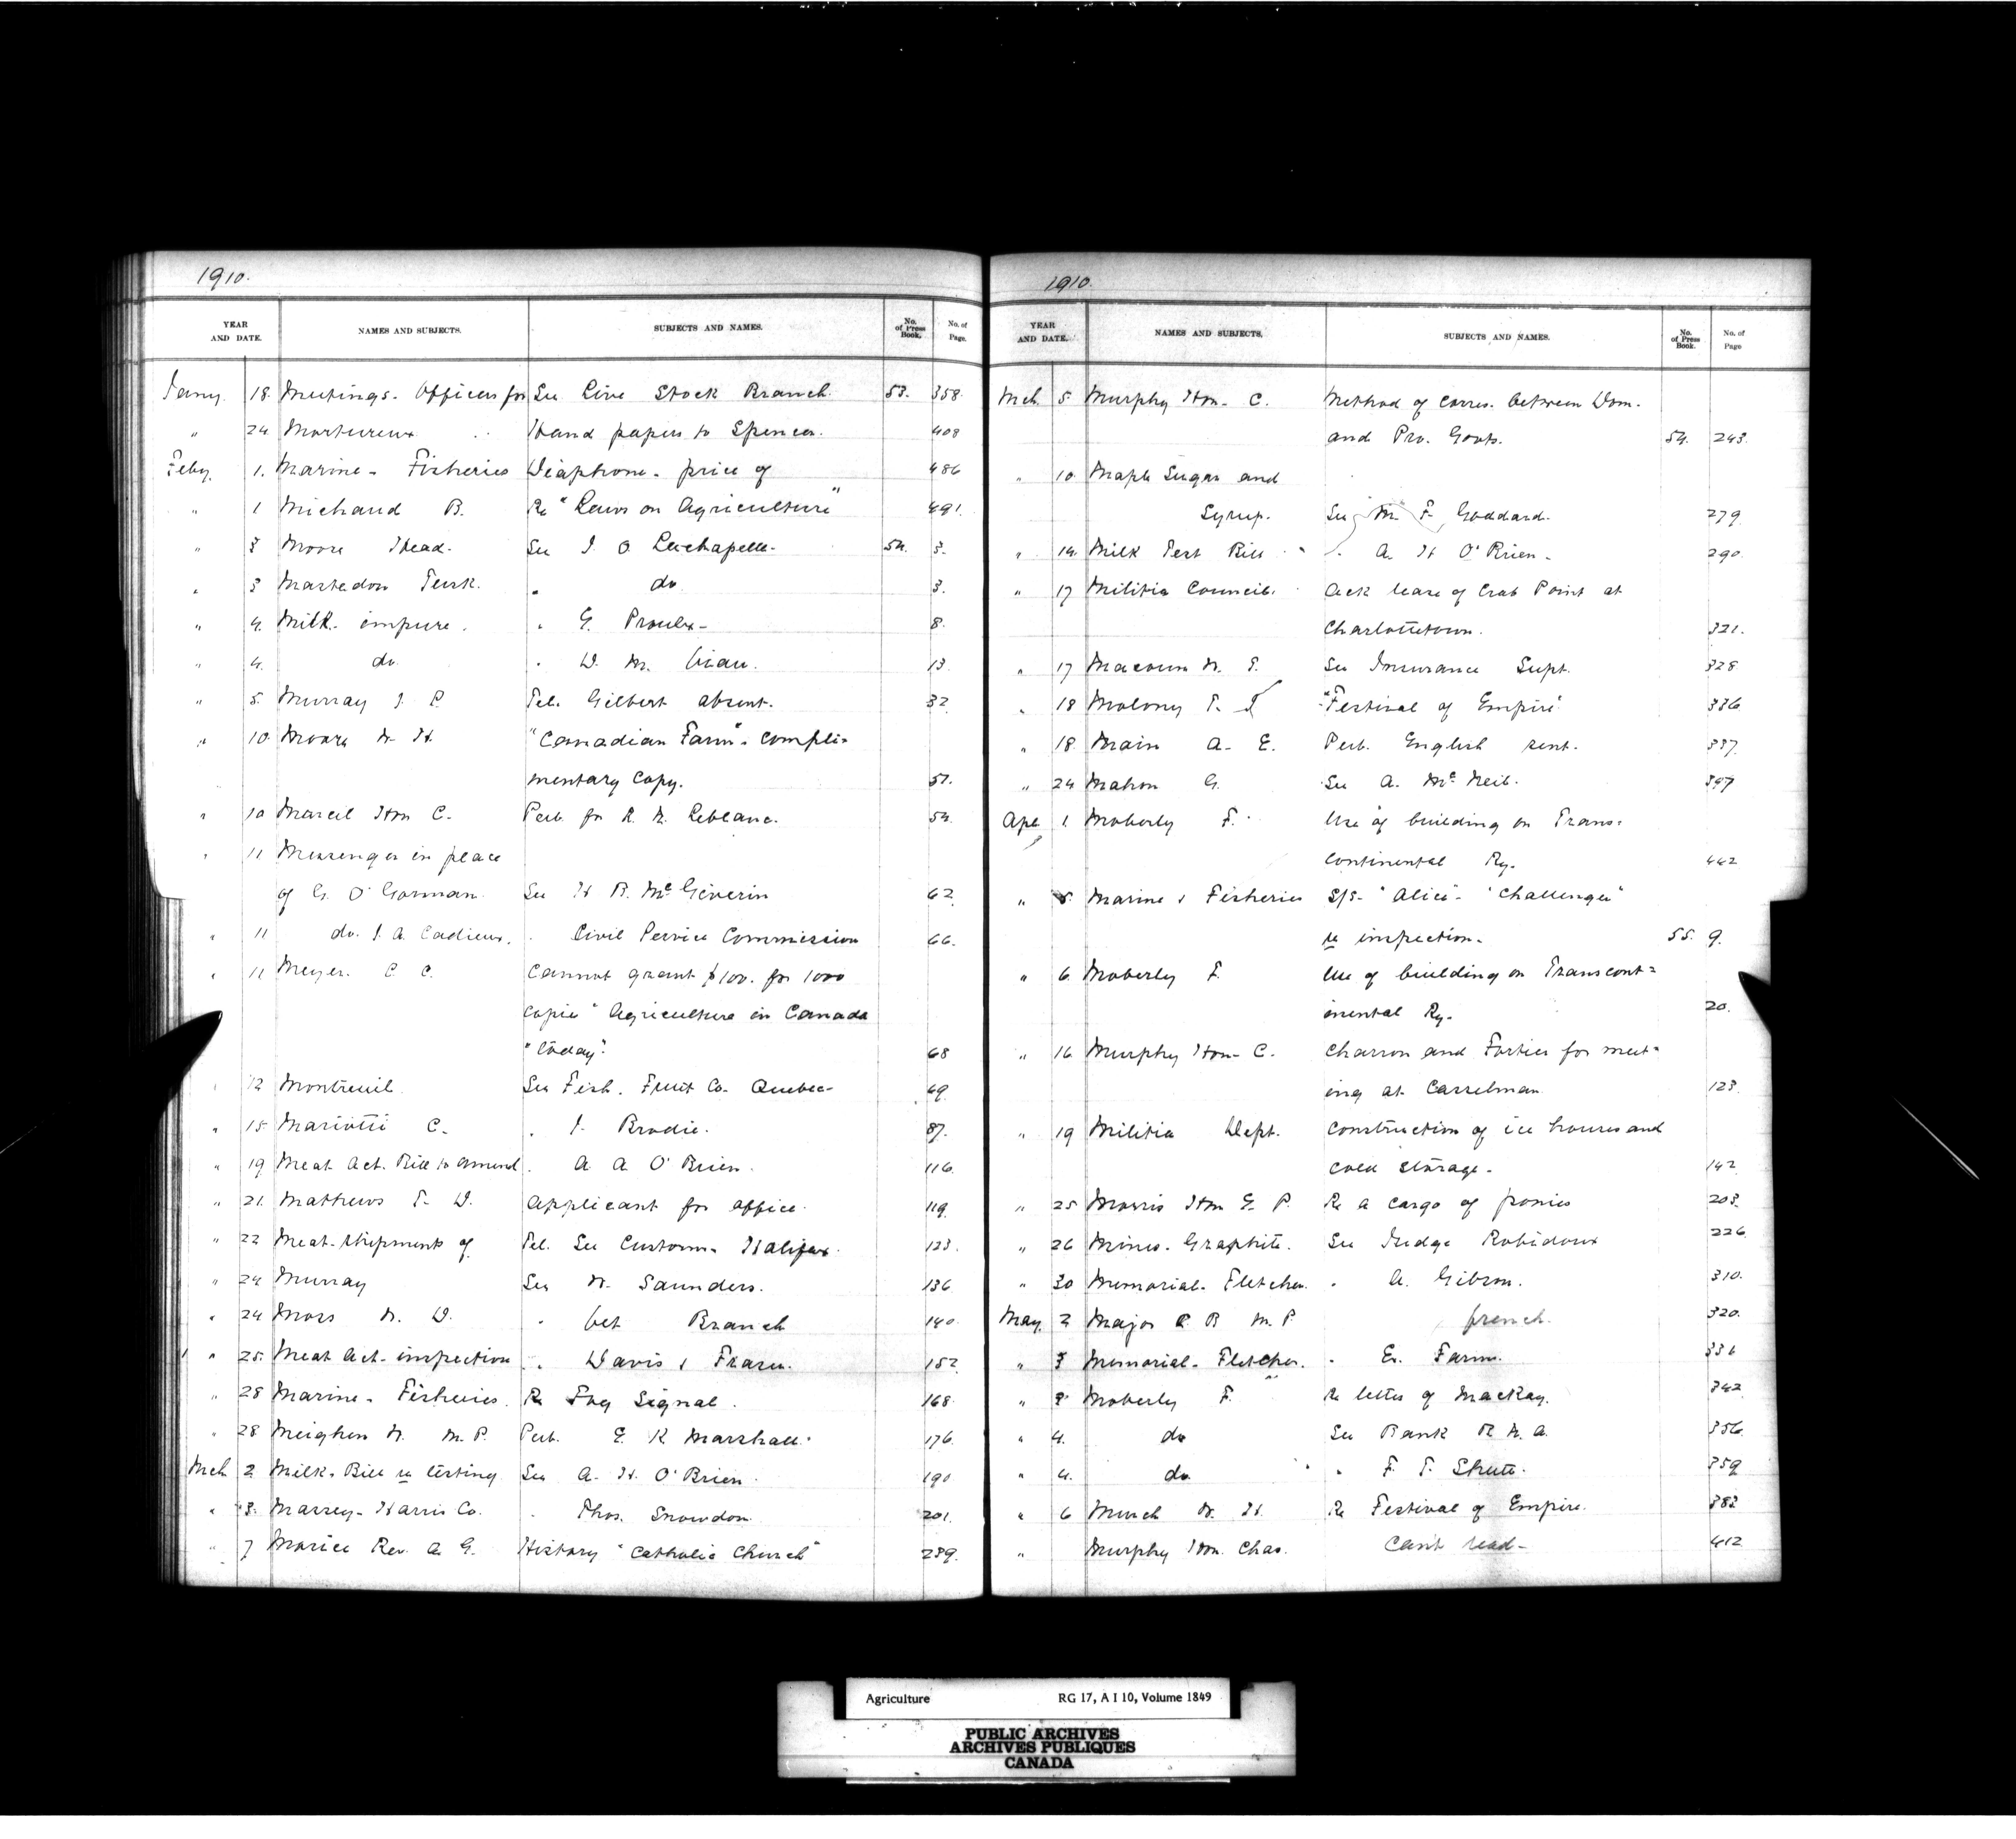 1910.
YEAR AND DATE. NAMES AND SUBJECTS. SUBJECTS AND NAMES. No. of Press Book. No. of Page.
Jany. 18. Meetings. Officers for See Live Stock Branch. 53. 358.
" 24. Hand papers to Spencer. 408
Feby. 1. Marine - Fisheries Diaphone - price of 486
" 1 Michaud B. Re "Laws on Agriculture" 491.
" 3 Moose Head. See J. O. Lachapelle. 54. 3.
" 3 Mastedon Tusk. " do 3.
" 4. Milk - impure. " G. Proulx - 8.
" 4. do. " D. M. Viau. 13.
" 5. Murray J. P. Tel. Gilbert absent. 32
" 10. Moore W. H. "Canadian Farm" - compli-
mentary copy. 51.
" 10 Marcil Hon C. Pub. for R. N. Leblanc. 54.
" 11 Messenger in place
of G. O'Gorman. See H. B. McGiverin 62.
" 11 do. J. A. Cadieux. " Civil Service Commission 66.
" 11 Meyer. C. C. Cannot grant $100. for 1000
copies "Agriculture in Canada
"today". 68
" 12 Montreuil. See Fish. Fruit Co. Quebec - 69.
" 15. Mariotti C. " J. Brodie. 87.
" 19 Meat Act. Bill to amend. " A. A. O'Brien. 116.
" 21. Mathews T. D. Applicant for office. 119.
" 22 Meat - shipment of Tel. See Customs - Halifax. 123.
" 24. Murray See W. Saunders. 136.
" 24 Moss W. D. " Vet Branch 140.
" 25. Meat Act - inspection " Davis & Fraser. 152
" 28 Marine - Fisheries. Re Fog Signal. 168.
" 28 Meighen M. P. Pub. E. K. Marshall. 176.
Mch. 2 Milk - Bill re testing See A. H. O'Brien. 190.
" 3. Massey - Harris Co. " Thos. Snowdon. 201.
" 7 Morice Rev. A. G. History "Catholic Church" 239.
1910.
YEAR AND DATE. NAMES AND SUBJECTS. SUBJECTS AND NAMES. No. of Press Book. No. of Page
Mch. 5. Murphy Hon - C. Method of corres. between Dom.
and Pro. Govts. 54. 243.
" 10. Maple Sugar and
Syrup. See M. F. Goddard. 279
" 14. Milk Test Bill " A. H. O'Brien - 290.
" 17 Militia Council. Ack lease of Crab Point at
Charlottetown. 321.
" 17 Macoun W. T. See Insurance Supt. 328
" 18 Molony T. J. "Festival of Empire" 336.
" 18. Main A. E. Pub. English sent. 337.
" 24 Mahon G. See A. McNeil. 397
Apl 1. Moberly F. Use of building on Trans-
continental Ry. 442
" 5. Marine & Fisheries S/S - "Alice" - "Challenger"
re inspection. 55. 9.
" 6. Moberly F. Use of building on Transcont-
inental Ry. 20.
" 16 Murphy Hon - C. Charron and Fortier for meet-
ing at Casselman. 123.
" 19 Militia Dept. Construction of ice houses and
cold storage. 142
" 25 Morris Hon E. P. Re a cargo of ponies 203.
" 26 Mines - Graphite. See Judge Robidoux 226.
" 30 Memorial - Fletcher. " A. Gibson. 310.
May. 2 Major M. P. french. 320.
" 3 Memorial - Fletcher. " Ex. Farm. 336
" 3 Moberly F. Re letter of Mackay. 342
" 4. do See Bank B. N. A. 356.
" 4. do. " F. T. Shutt. 359
" 6 Munch W. H. Re Festival of Empire. 383
" Murphy Hon. Chas. Can't read - 412
Agriculture RG 17, A I 10, Volume 1849
PUBLIC ARCHIVES
ARCHIVES PUBLIQUES
CANADA